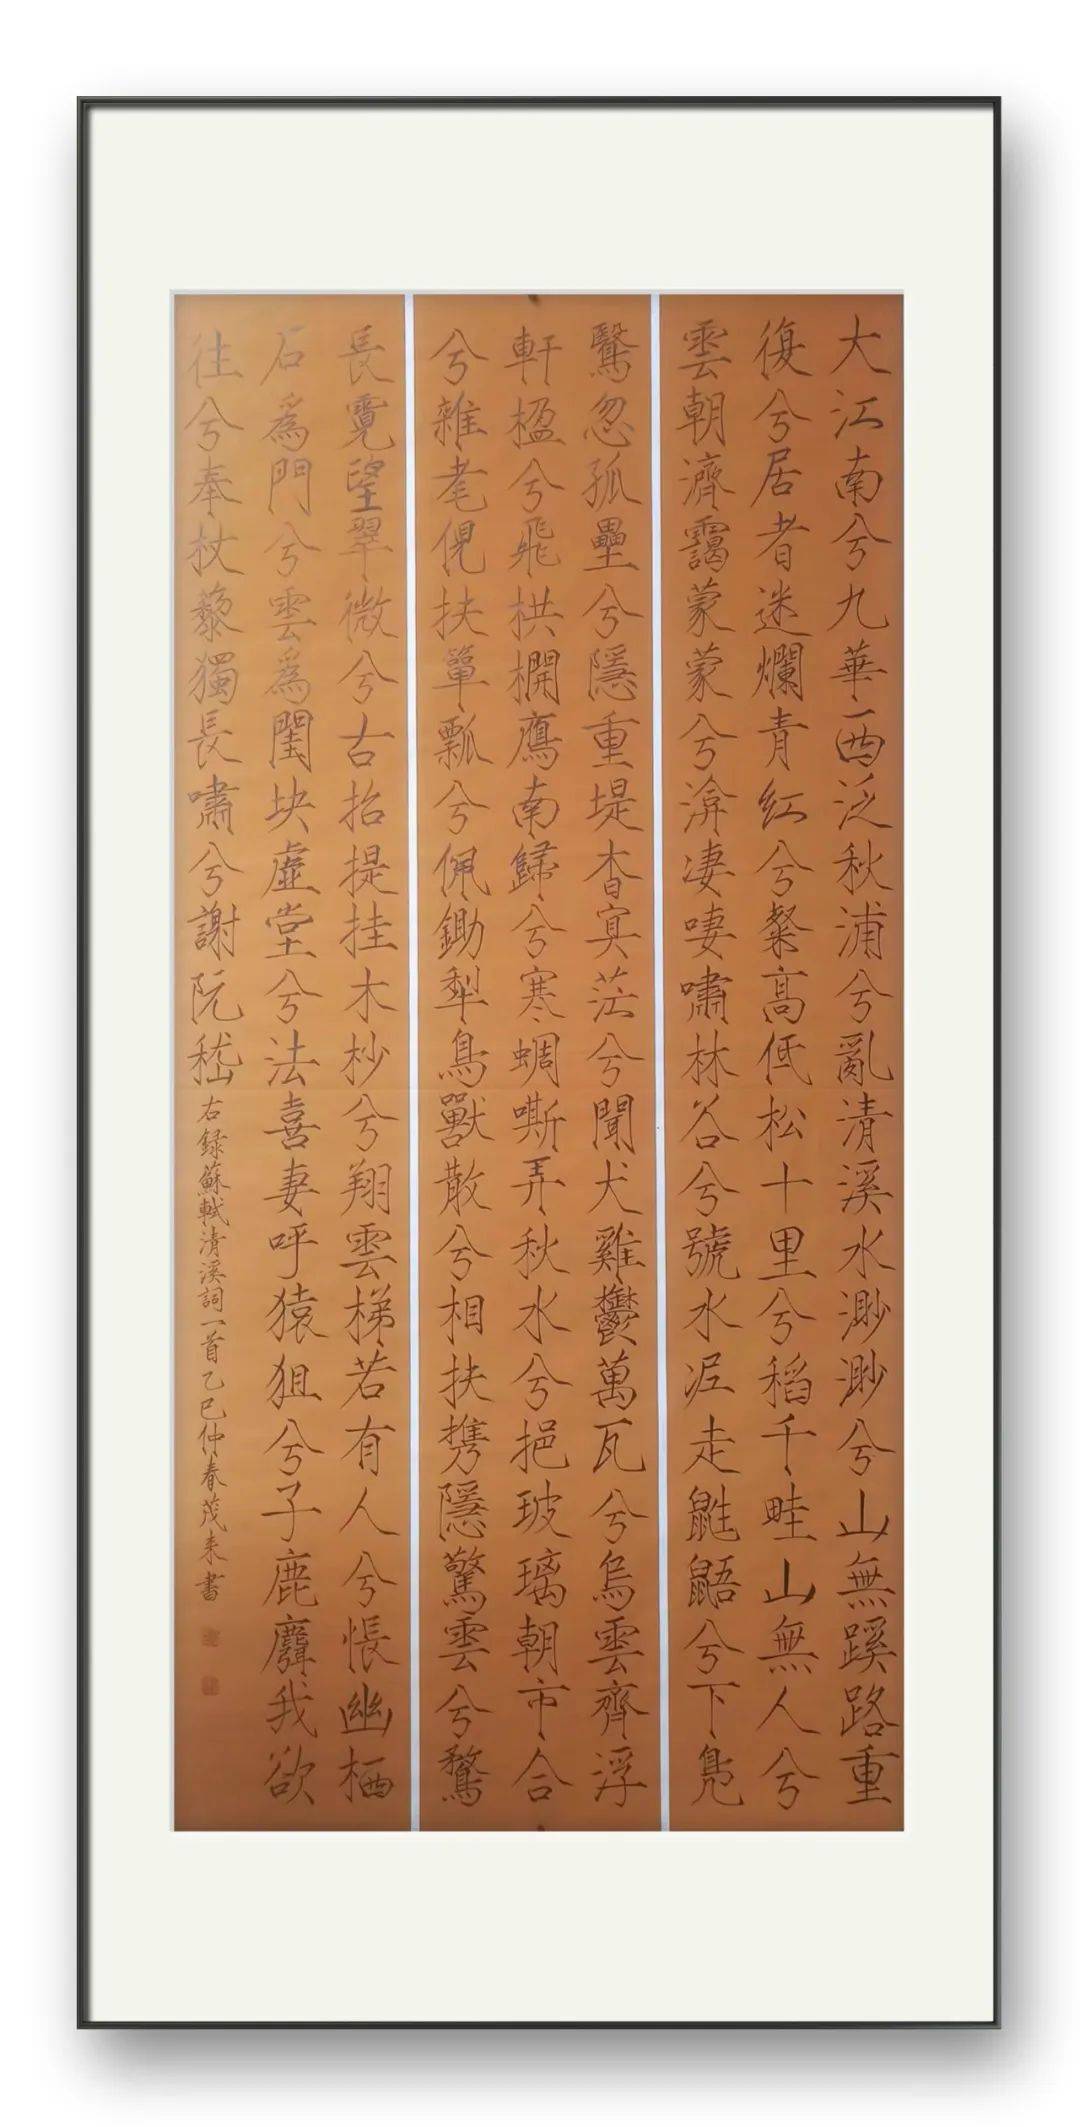 大江南兮九華西泛秋浦兮亂清溪水渺渺兮山無蹊路重
復兮居者迷爛青紅兮粲高低松十里兮稻千畦山無人兮
雲朝濟靄蒙蒙兮渰凄凄嘯林谷兮號水泥走鼪鼯兮下鳧
鷖忽孤壘兮隱重堤杳冥茫兮聞犬雞鬱萬瓦兮烏雲齊浮
軒楹兮飛栱鴈南歸兮寒蜩嘶弄秋水兮挹玻璃朝市合
兮雜耄倪扶簞瓢兮佩鋤犁鳥獸散兮相扶携隱驚雲兮騖
長霓望翠微兮古招提挂木杪兮翔雲梯若有人兮悵幽栖
石爲門兮雲爲閨块虛堂兮法喜妻呼猿狙兮子鹿麛我欲
往兮奉杖藜獨長嘯兮謝阮嵇
右録蘇軾清溪詞一首乙巳仲春茂來書